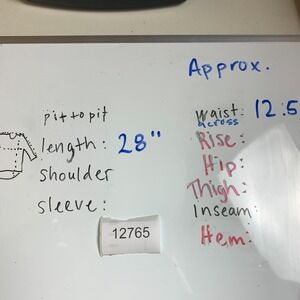 Approx.
pit to pit
length: 28"
shoulder
sleeve:
12765
waist: 12.5
across
Rise:
Hip:
Thigh:
Inseam:
Hem: